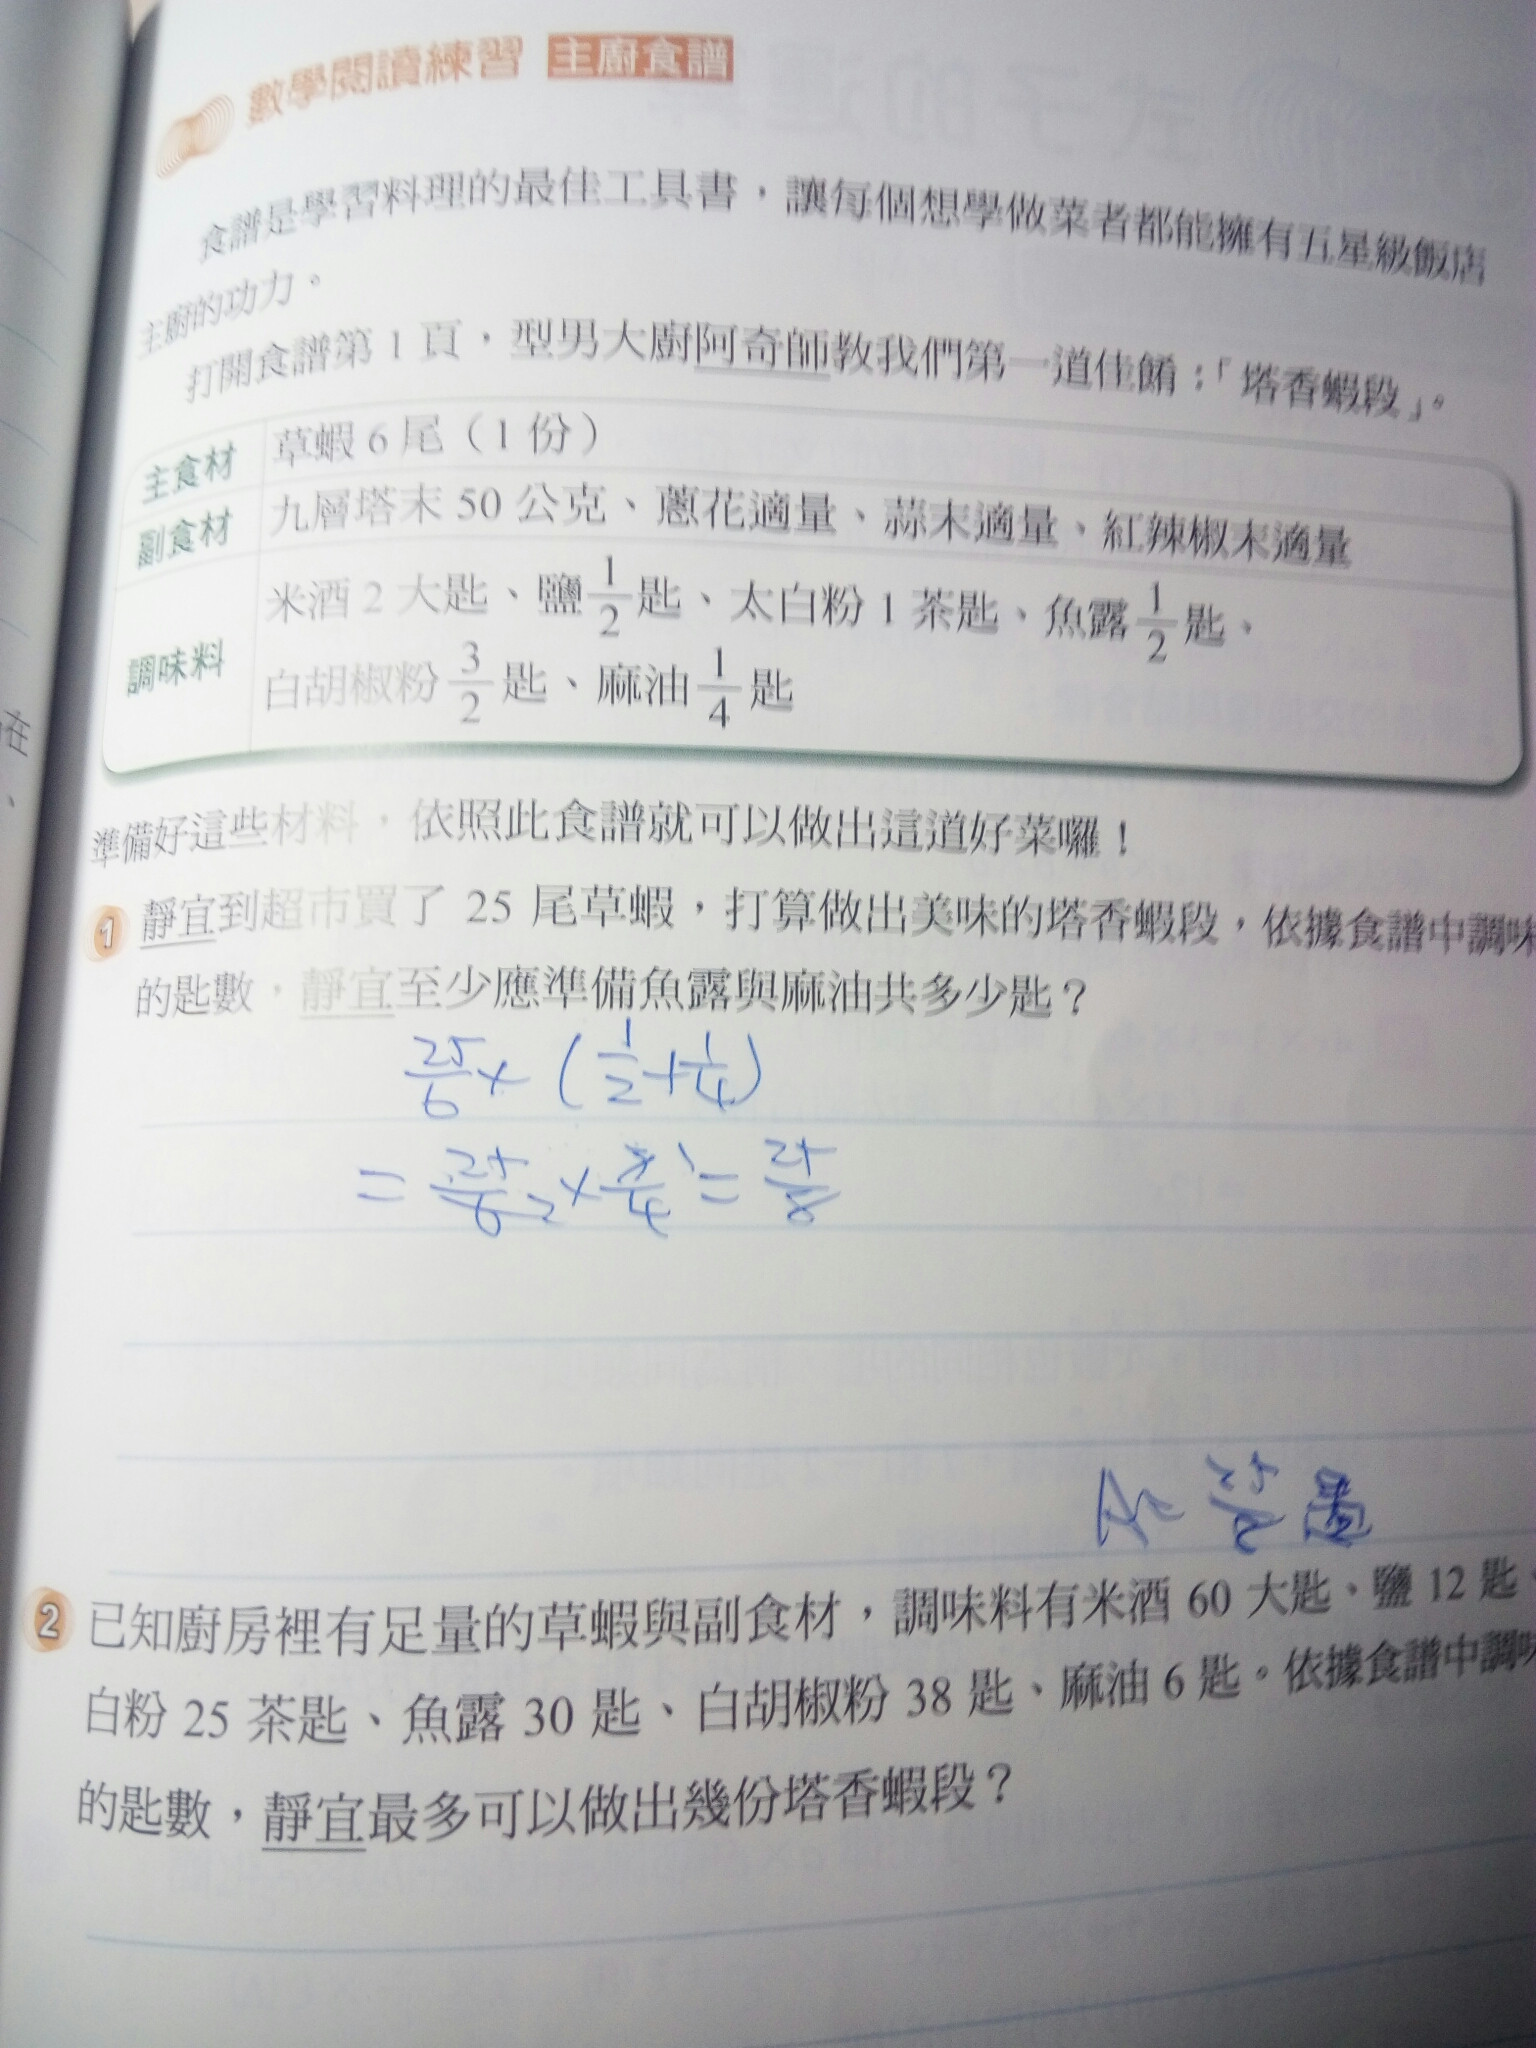 數學閱讀練習 主廚食譜
食譜是學習料理的最佳工具書，讓每個想學做菜者都能擁有五星級飯店
主廚的功力。
打開食譜第1頁，型男大廚阿奇師教我們第一道佳餚：「塔香蝦段」。
主食材 草蝦6尾（1份）
副食材 九層塔末50公克、蔥花適量、蒜末適量、紅辣椒末適量
調味料 米酒2大匙、鹽1/2匙、太白粉1茶匙、魚露1/2匙、
白胡椒粉3/2匙、麻油1/4匙
準備好這些材料，依照此食譜就可以做出這道好菜囉！
1 靜宜到超市買了25尾草蝦，打算做出美味的塔香蝦段，依據食譜中調味
的匙數，靜宜至少應準備魚露與麻油共多少匙？
25/6×(1/2+1/4)
=25/6 2×3/4 1=25/8
2 已知廚房裡有足量的草蝦與副食材，調味料有米酒60大匙、鹽12匙、
白粉25茶匙、魚露30匙、白胡椒粉38匙、麻油6匙。依據食譜中調味
的匙數，靜宜最多可以做出幾份塔香蝦段？
在
、